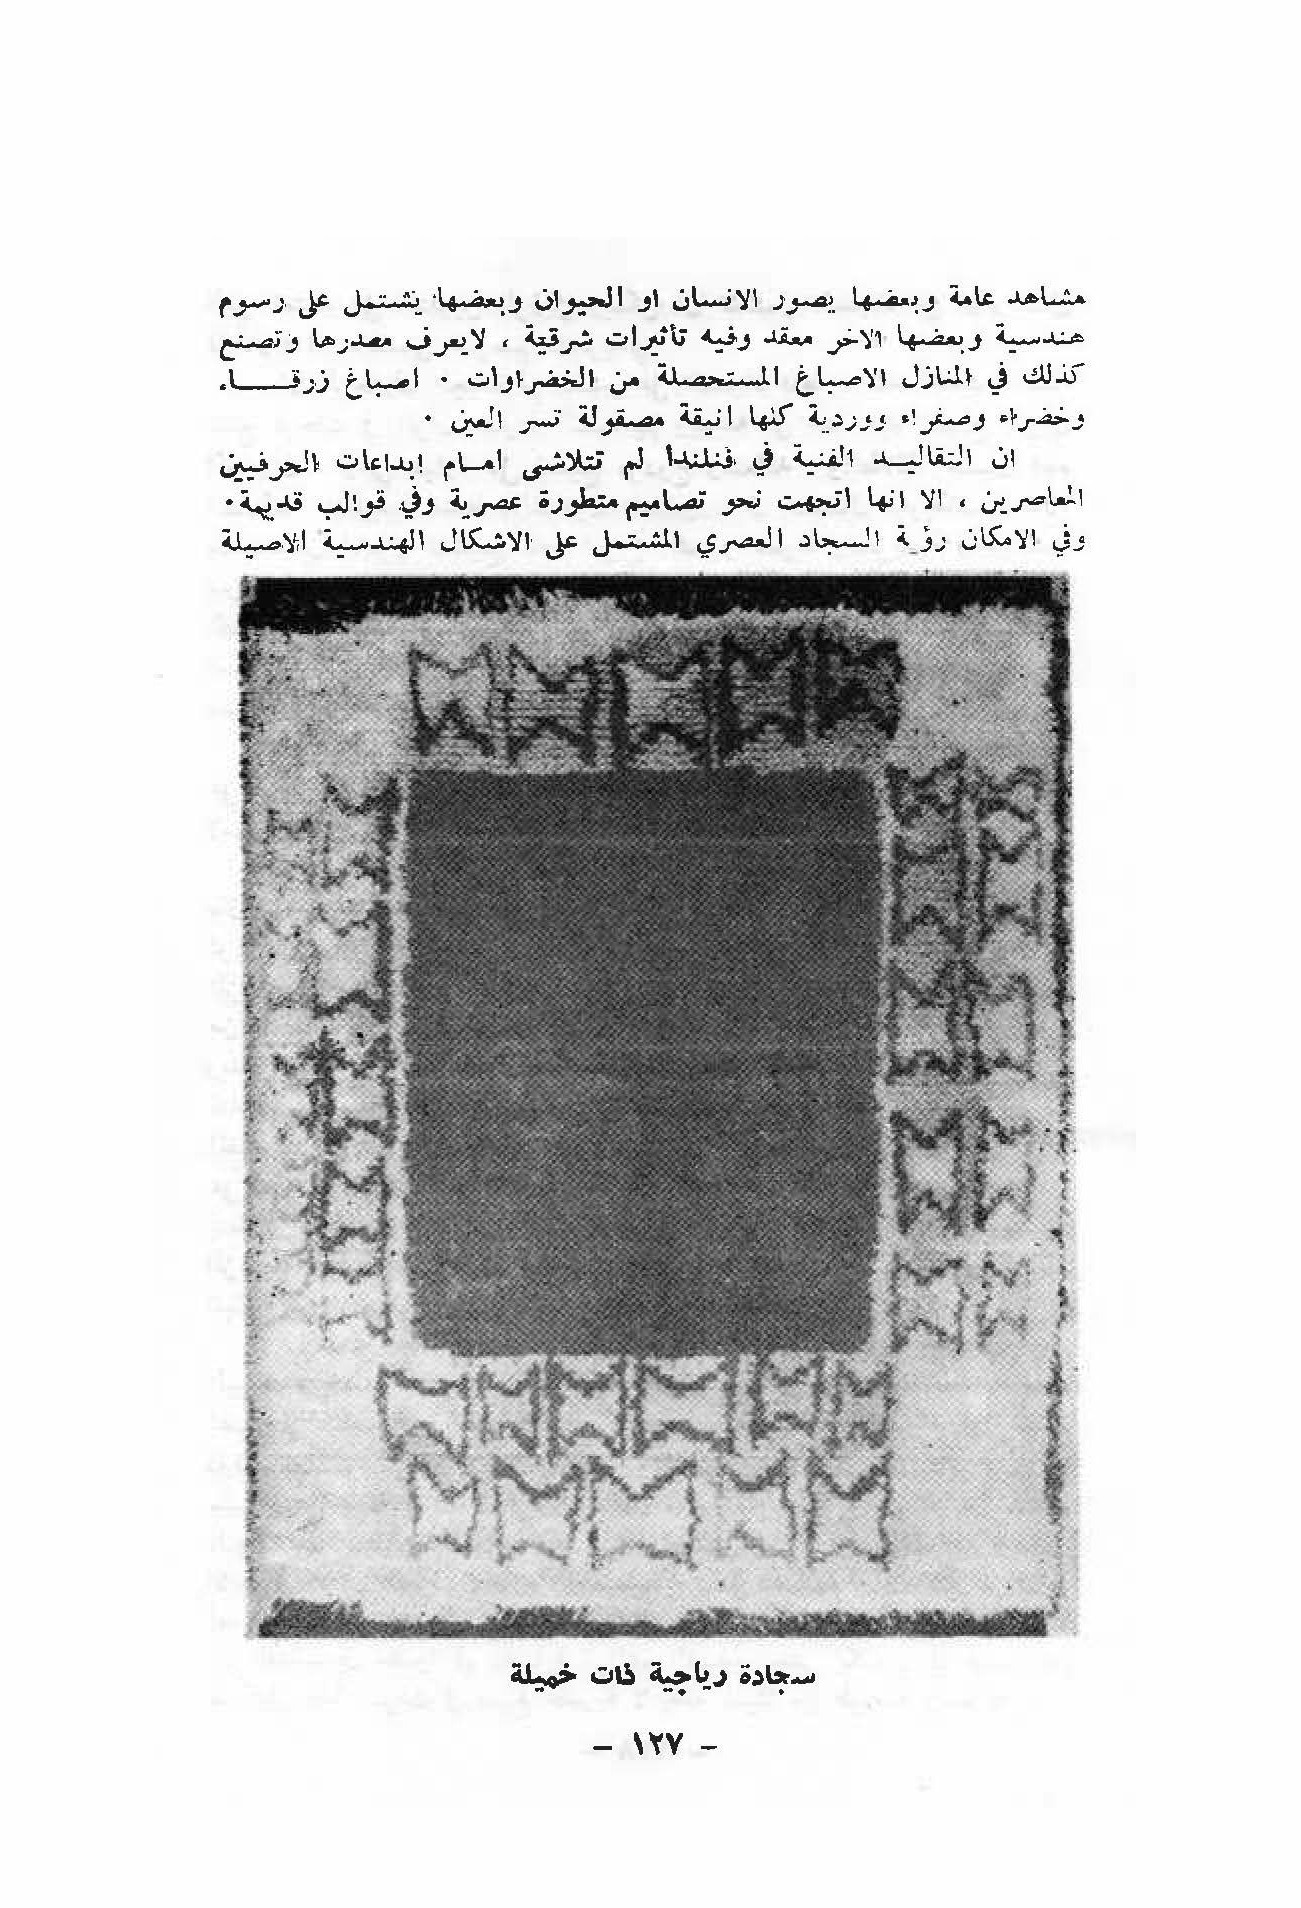 مشاهد عامة وبعضها يصور الانسان او الحيوان وبعضها يشتمل على رسوم
هندسية وبعضها الاخر معقد وفيه تأثيرات شرقية ، لايعرف مصدرها وتصنع
كذلك في المنازل الاصباغ المستحصلة من الخضراوات ٠ اصباغ زرقـــاء
وخضراء وصفراء ووردية كلها انيقة مصقولة تسر العين ٠
ان التقاليـد الفنية في فنلندا لم تتلاشى امـام إبداعات الحرفيين
المعاصرين ، الا انها اتجهت نحو تصاميم متطورة عصرية وفي قوالب قديمة ٠
وفي الامكان رؤية السجاد العصري المشتمل على الاشكال الهندسية الاصيلة
سجادة رياجية ذات خميلة
– ١٢٧ –